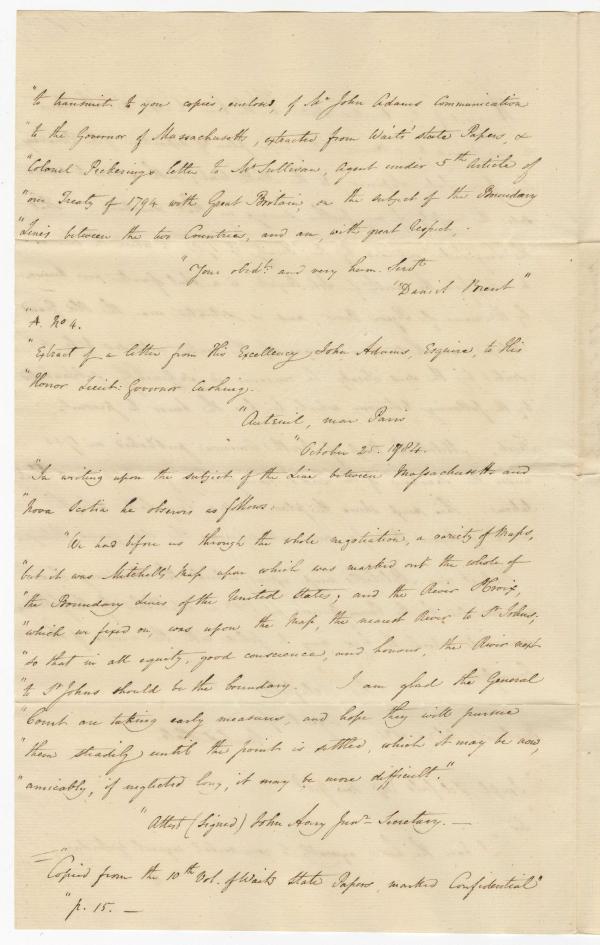 "to transmit to you copies, enclosed, of Mr John Adams Communication
"to the Governor of Massachusetts, extracted from Wait's State Papers, &
"Colonel Pickering's letter to Mr Sullivan, Agent under 5th Article of
"our Treaty of 1794 with Great Britain, on the subject of the Boundary
"Lines between the two Countries, and am, with great respect,
"Your obedt. and very hum. Servt.
"Daniel Brent"
"A. No 4.
"Extract of a letter from His Excellency John Adams, Esquire, to His
"Honor Lieut: Governor Cushing.
"Auteuil, near Paris
"October 25. 1784.
"In writing upon the subject of the Line between Massachusetts and
"Nova Scotia he observes as follows:
"We had before us through the whole negotiation, a variety of Maps,
"but it was Mitchell's Map upon which was marked out the whole of
"the Boundary Lines of the United States; and the River St Croix,
"which we fixed on, was upon the Map, the nearest River to St Johns;
"so that in all equity, good conscience, and honour, the River next
"to St Johns should be the boundary. I am glad the General
"Court are taking early measures, and hope they will pursue
"them steadily until the point is settled, which it may be now,
"amicably, if neglected long, it may be more difficult."
"Attest (Signed) John Avery Junr Secretary. —
"Copied from the 10th Vol. of Waits State Papers, marked Confidential"
"p. 15. —